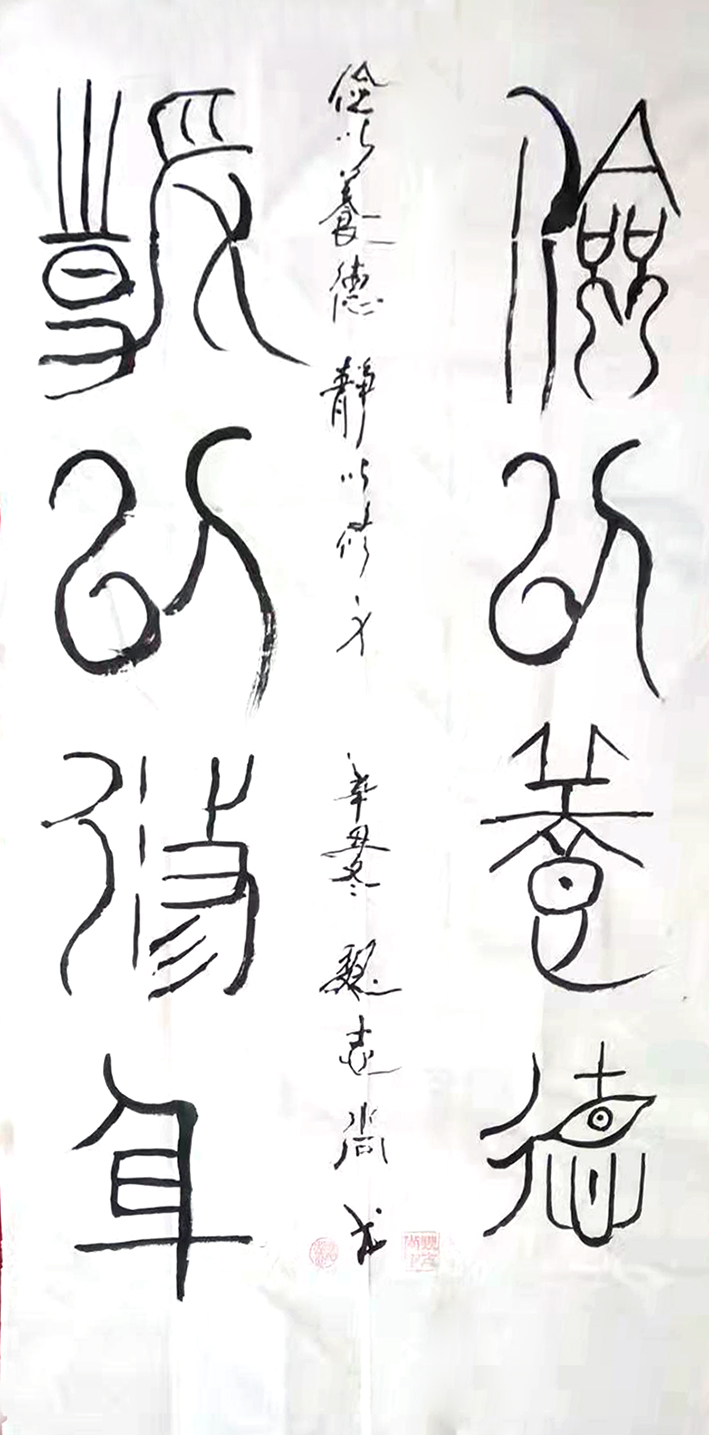 儉以養德
儉以養德 靜以修身 辛丑冬 魏志尚书
靜以修身